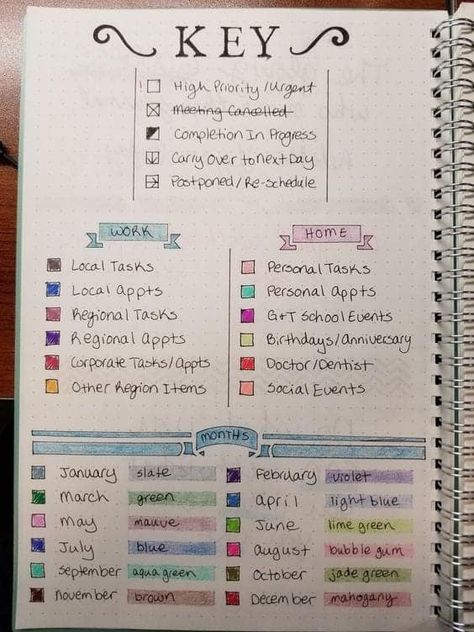 KEY
! High Priority/Urgent
Meeting Cancelled
Completion In Progress
Carry Over to Next Day
Postponed/Re-schedule
WORK
Local Tasks
Local Appts
Regional Tasks
Regional Appts
Corporate Tasks/Appts
Other Region Items
HOME
Personal Tasks
Personal Appts
G+T School Events
Birthdays/Anniversary
Doctor/Dentist
Social Events
MONTHS
January slate
February violet
March green
april light blue
may mauve
June lime green
July blue
august bubble gum
september aqua green
October jade green
november brown
December mahogany